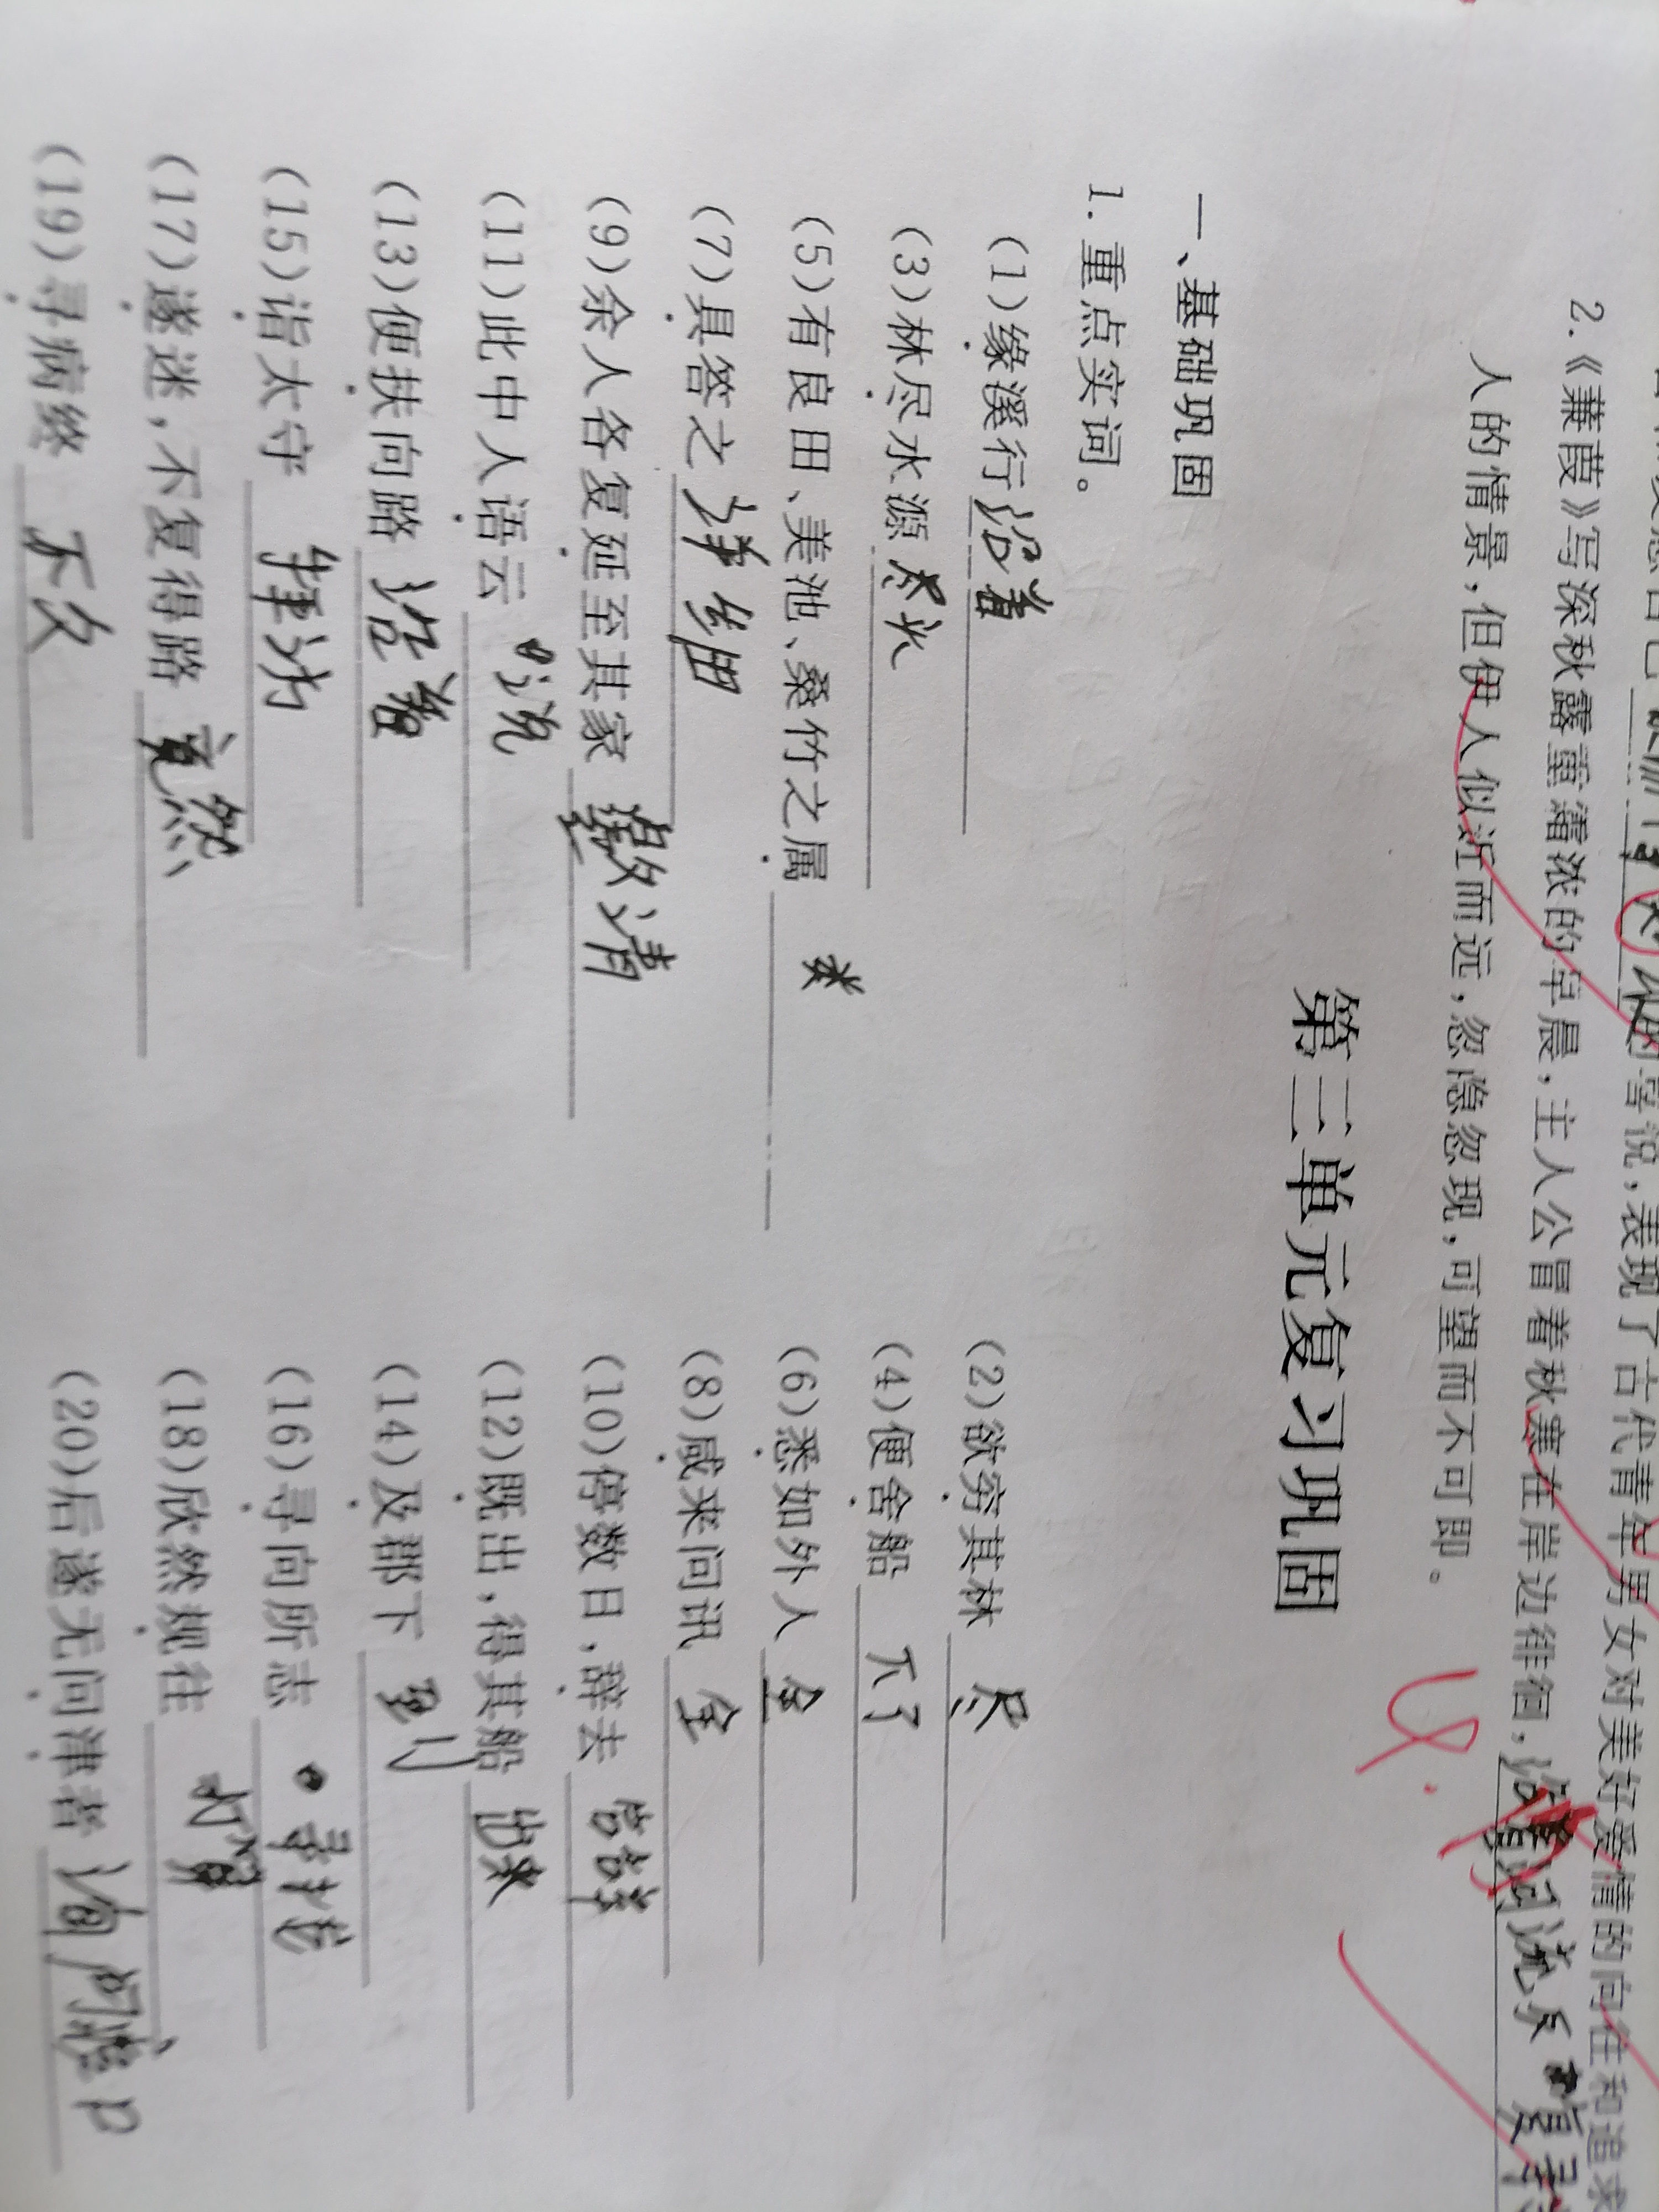 的喜悦,表现了古代青年男女对美好爱情的向往和追求
2.《蒹葭》写深秋露重霜浓的早晨,主人公冒着秋寒在岸边徘徊,
人的情景,但伊人似近而远,忽隐忽现,可望而不可即。
第三单元复习巩固
一、基础巩固
1.重点实词。
(1)缘溪行 沿着 (2)欲穷其林 尽
(3)林尽水源 尽头 (4)便舍船
(5)有良田、美池、桑竹之属 类 (6)悉如外人 全
(7)具答之 详细 (8)咸来问讯 全
(9)余人各复延至其家 邀请 (10)停数日,辞去 告辞
(11)此中人语云 说 (12)既出,得其船 出来
(13)便扶向路 沿着 (14)及郡下 到
(15)诣太守 拜访 (16)寻向所志 寻找
(17)遂迷,不复得路 竟然 (18)欣然规往 打算
(19)寻病终 不久 (20)后遂无问津者 询问渡口